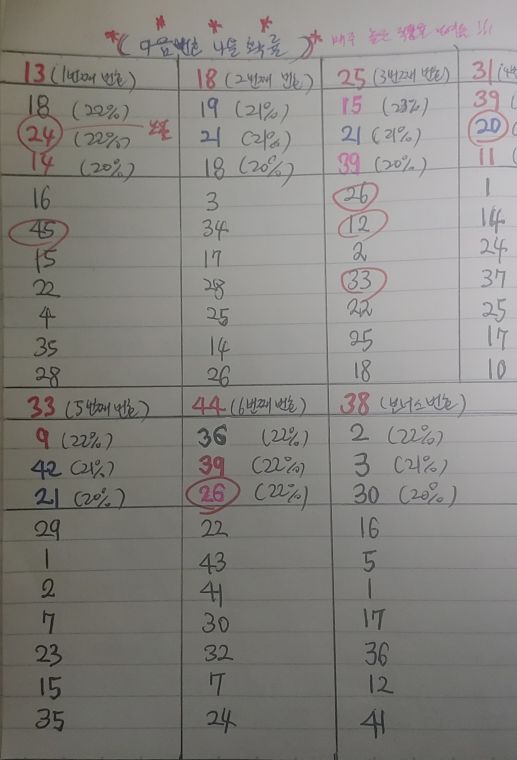 * * * * *
(다음번호 나올 확률) 매주 높은 적중율 보여요!!!
13 (1번째 번호) 18 (2번째 번호) 25 (3번째 번호) 31
18 (22%) 19 (21%) 15 (23%) 39
24 (22%) 21 (21%) 21 (21%) 20
14 (20%) 18 (20%) 39 (20%) 11
16 3 26 1
45 34 12 14
15 17 2 24
22 28 33 37
4 25 22 25
35 14 25 17
28 26 18 10
33 (5번째 번호) 44 (6번째 번호) 38 (보너스번호)
9 (22%) 36 (22%) 2 (22%)
42 (21%) 39 (22%) 3 (21%)
21 (20%) 26 (22%) 30 (20%)
29 22 16
1 43 5
2 41 1
7 30 17
23 32 36
15 7 12
35 24 41